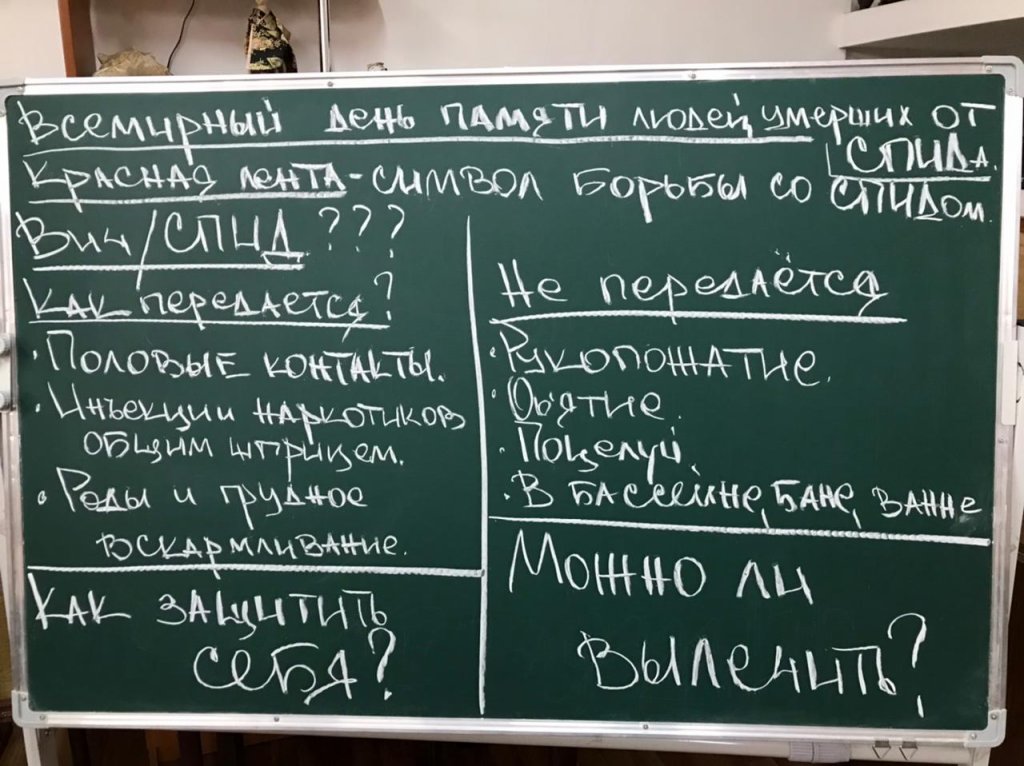 Всемирный день памяти людей, умерших от
СПИДа.
Красная лента - символ борьбы со СПИДом.
Вич/СПИД ???
Как передается?
• Половые контакты.
• Инъекции наркотиков
общим шприцем.
• Роды и грудное
вскармливание.
Как защитить
себя?
Не передаётся
• Рукопожатие.
• Объятие.
• Поцелуй.
• В бассейне, бане, ванне
Можно ли
вылечить?